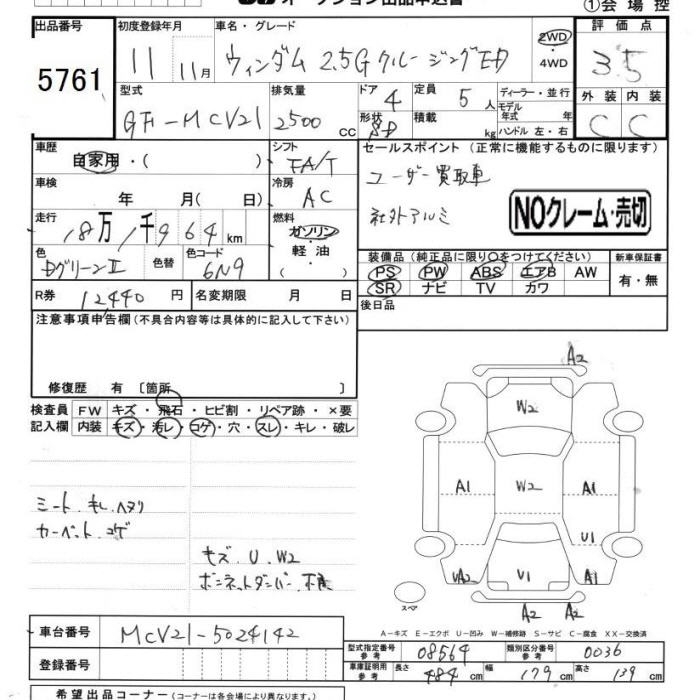 オークション出品申込書
①会場控
出品番号
5761
初度登録年月
11 11月
車名・グレード
ウィンダム 2.5Gクルージング ED
2WD
・
4WD
評価点
3.5
型式
GF-MCV21
排気量
2500 cc
ドア 4
形状
定員 5 人
積載 kg
ディーラー・並行
モデル
年式 年
ハンドル 左・右
外装 内装
C C
車歴
自家用・( )
シフト
FA/T
セールスポイント(正常に機能するものに限ります)
ユーザー買取車
社外アルミ
NOクレーム・売切
車検
年 月( 日)
冷房
AC
走行
18万1千964 km
燃料
ガソリン
・
軽油
・
( )
色
Dグリーン II
色替
色コード
6N9
装備品(純正品に限り○をつけてください)
PS PW ABS エアB AW
SR ナビ TV カワ
新車保証書
有・無
R券 12440 円
名変期限 月 日
後日品
注意事項申告欄(不具合内容等は具体的に記入して下さい)
修復歴 有 〔箇所 〕
検査員 FW キズ・飛石・ヒビ割・リペア跡・×要
記入欄 内装 キズ・汚レ・コゲ・穴・スレ・キレ・破レ
カーペット.コゲ
キズ U W2
ボンネットダンパー.不良
A2
W2
A1 W2 A1
U1
UA2 U1 A1
A2 A2
スペア
A－キズ E－エクボ U－凹み W－補修跡 S－サビ C－腐食 XX－交換済
車台番号 MCV21-5024142
登録番号
型式指定番号
参考 08564
類別区分番号
参考 0036
車庫証明用
参考 長さ 484 cm 幅 179 cm 高さ 139 cm
希望出品コーナー(コーナーは各会場により異なります)